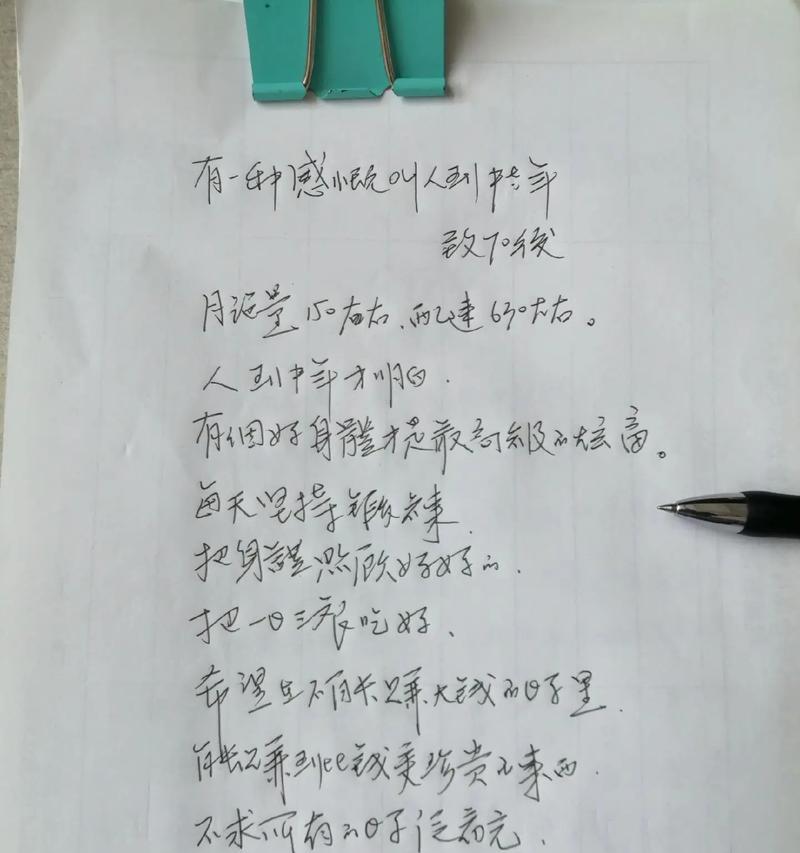 有一种感慨叫人到中年
致70後
月跑量150左右、配速630左右。
人到中年才明白.
有個好身體才是最高級的炫富。
每天坚持鍛炼
把身體照顾好好的.
把一日三餐吃好、
希望在不能賺大钱的日子里.
能賺到比钱更珍贵的東西.
不求所有的日子泛着光.